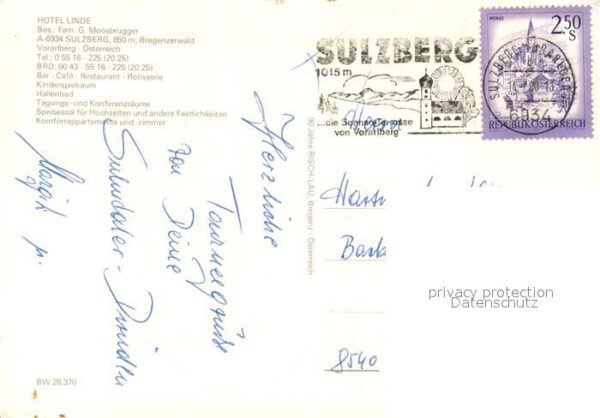 HOTEL LINDE
Bes.: Fam. G. Moosbrugger
A-6934 SULZBERG, 850 m, Bregenzerwald
Vorarlberg - Österreich
Tel.: 0 55 16 - 225 (20 25)
BRD: 00 43 - 55 16 - 225 (20 25)
Bar - Café - Restaurant - Rotisserie
Kinderspielraum
Hallenbad
Tagungs- und Konferenzräume
Speisesaal für Hochzeiten und andere Festlichkeiten
Komfortappartements und -zimmer
Herzliche
Tourneegrüße
von Deine
Margit
BW 28.370
90 Jahre RISCH-LAU, Bregenz - Österreich
SULZBERG
1015 m
...die Sonnenterrasse
von Vorarlberg
MURAU
2.50
S
REPUBLIK ÖSTERREICH
6934
8540
privacy protection
Datenschutz